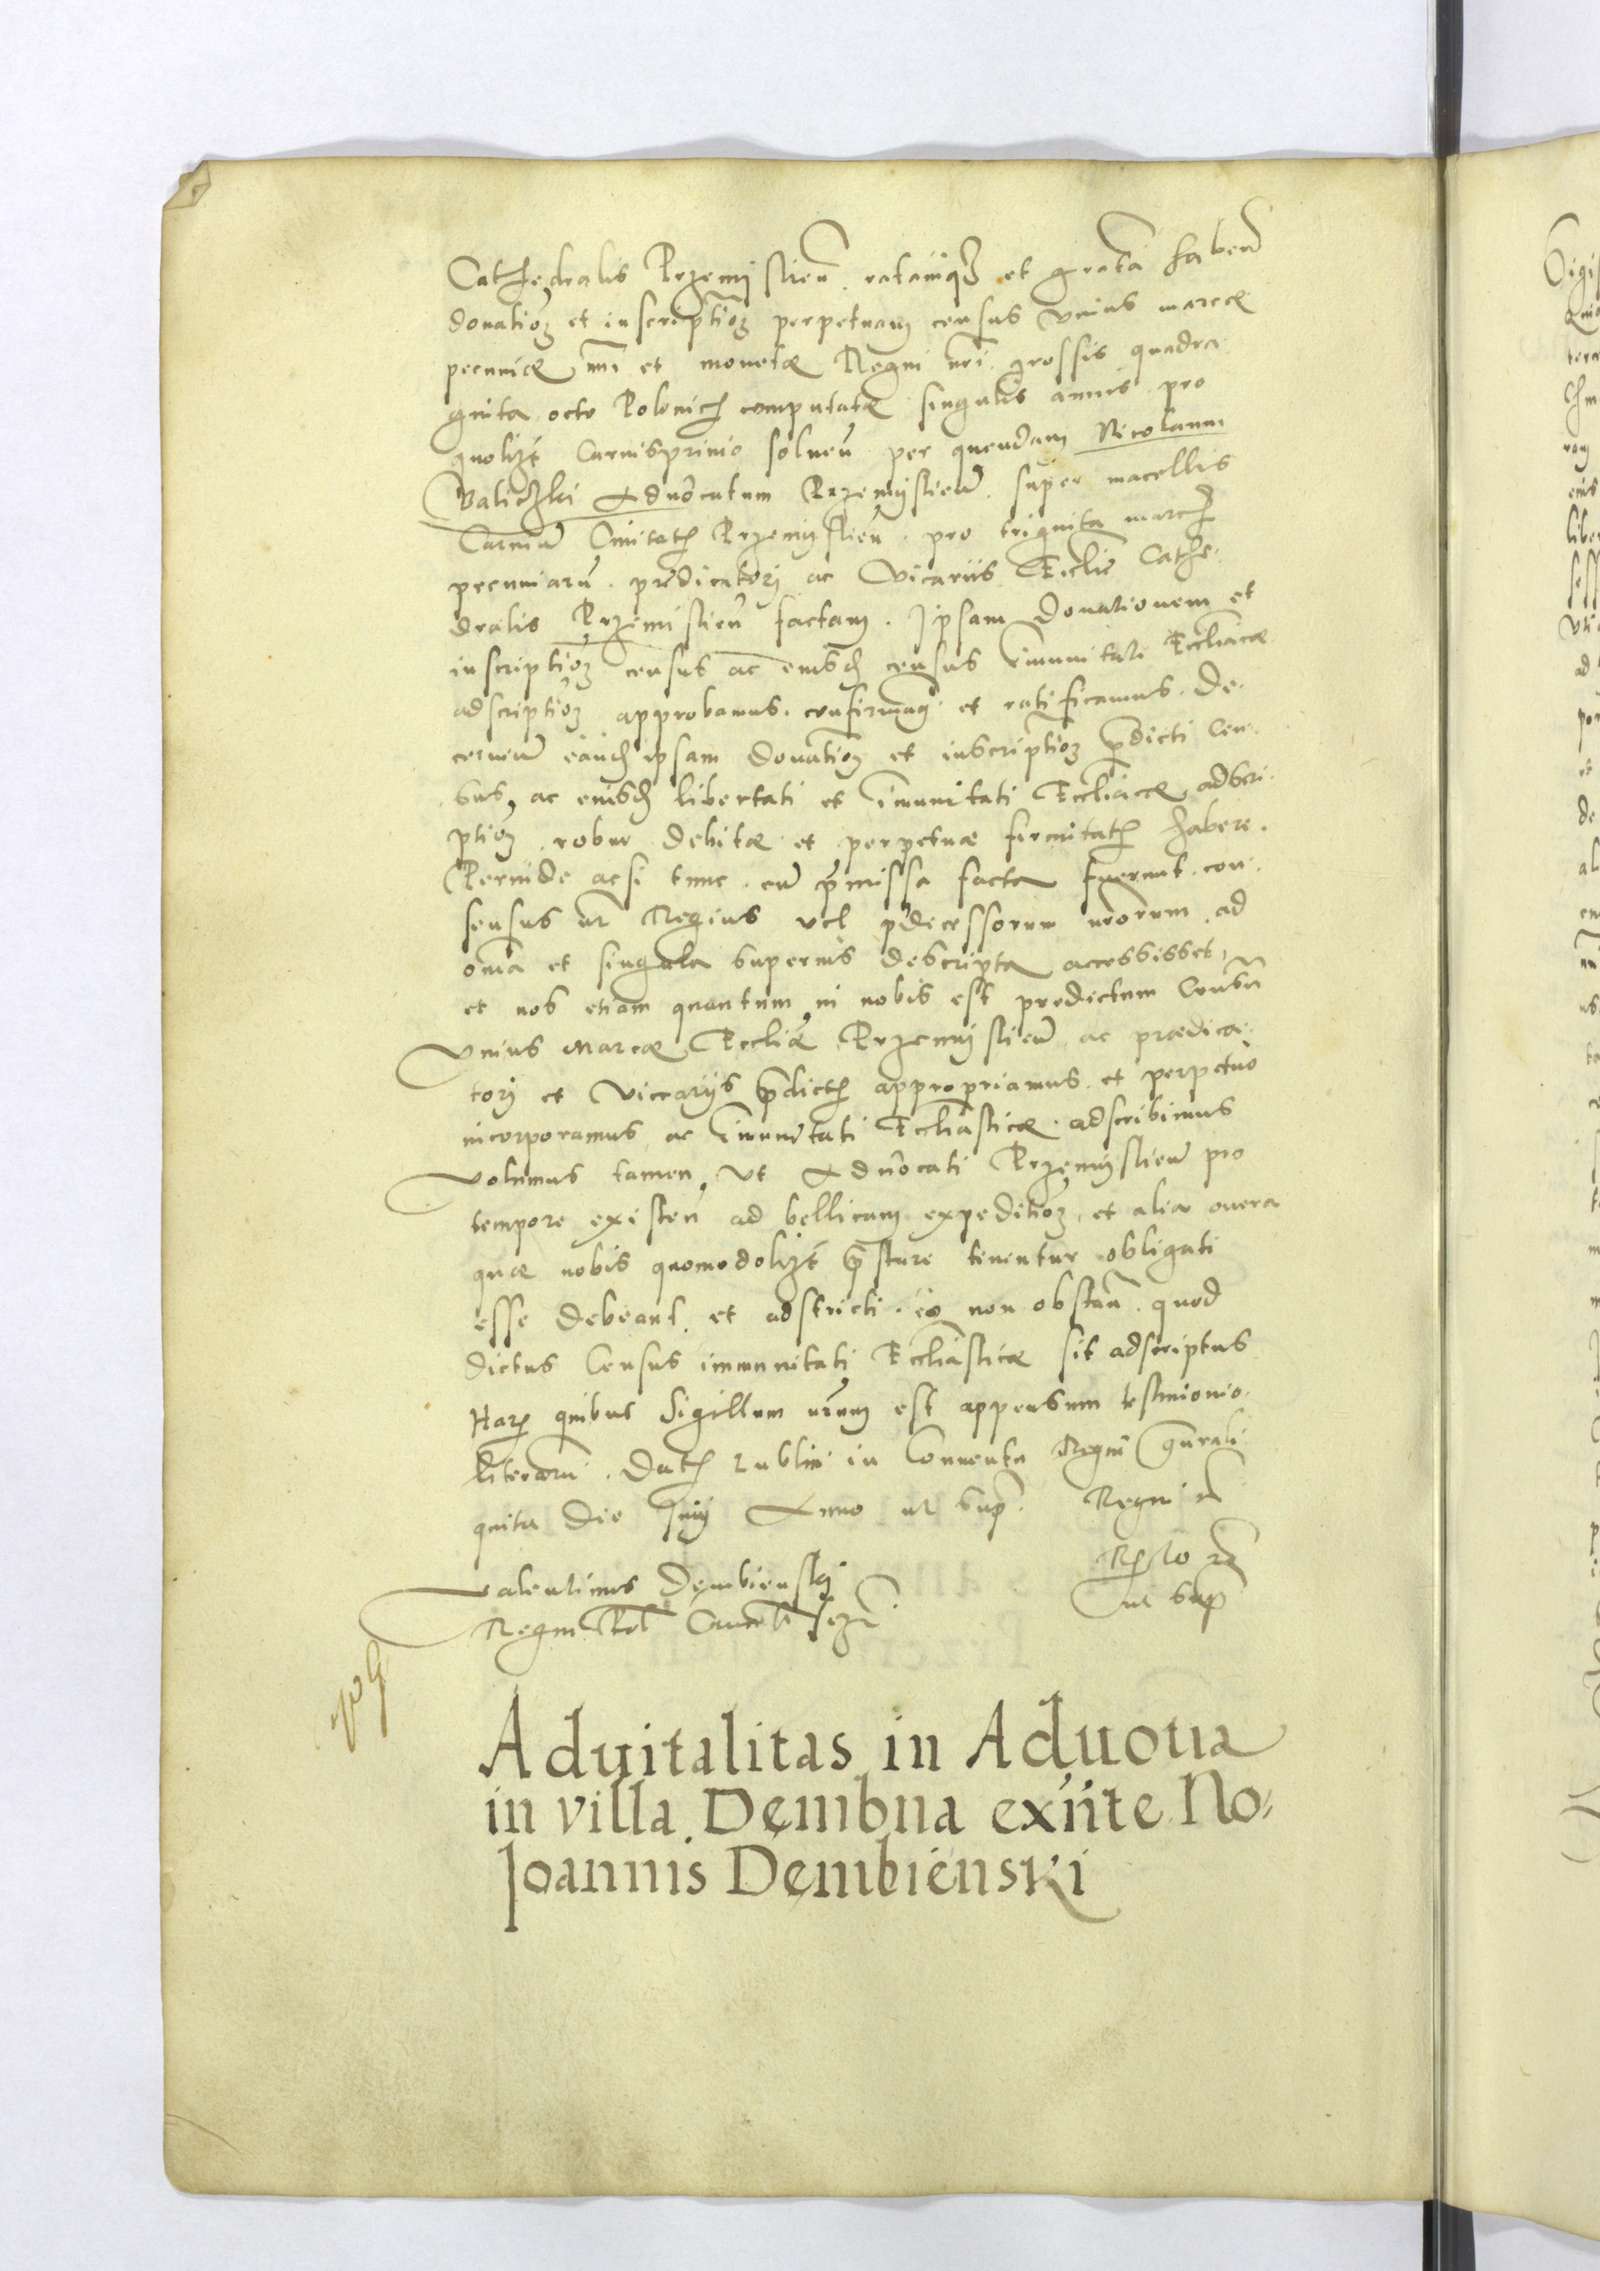 Cathedralis Przemisliens̄ ratamq₃ et gratā habens̄
donatioȝ et inscriptioȝ perpetuam census vnius marcæ
pecuniæ et monetæ Regni nr̄i grossis quadra
ginta octo Polonicℓ computatæ singulis annis pro
quolibȝ Carnisprivio solveñ per quendam Nicolaum
Baliczki Aduōcatum Przemislieñ super macellis
Carniū Ciuitatℓ Przemyslieñ. pro triginta marcℓ
pecuniarū. prædicatori ac Vicariis Eccliæ Cathe-
dralis Przemislieñ factam. Ipsam donationem et
inscriptioȝ census ac eiusd̄ census im̄unitati Eccliaticæ
adscriptioȝ approbamus. confirmam9 et ratificamus. De-
cerneñ eand̄ ipsam donatioȝ et inscriptioȝ p̄dicti Cen-
sus, ac eiusd̄ libertati et im̄unitati Eccliaticæ adscri-
ptioȝ robur debitæ et perpetuæ firmitatℓ habere.
Perinde acsi tunc cū p̄missa facta fuerunt. con-
sensus nr̄ Regius vel p̄decessorum nr̄orum ad
om̄ia et singula superius descripta accessisset,
et nos etiam quantum in nobis est predictum Censū
Vnius Marcæ Eccliæ Przemysliens̄ ac prædica-
tori et Vicaryis p̄dictℓ appropriamus et perpetuò
incorporamus ac im̄unitati Eccliasticæ adscribimus
Volumus tamen, Vt Aduōcati Przemyslieñ pro
tempore existeñ ad bellicam expeditioȝ et alia onera
quæ nobis quomodolibȝ p̄stare tenentur obligati
esse debeant et adstricti. eo non obstañ. quod
dictus Census immunitati Eccliasticæ sit adscriptus
Harȝ quibus Sigillum nr̄um est appensum testimonio
literarū. Datℓ Lublin in Conuentu Regni gn̄rali
quita die Anno ut supȓ. Regni nr̄
Valentinus Dembienski
Regni Pol̄ Cancell̄
Rℓlo
ut supȓ
Aduitalitas in Aduotia
in villa Dembna exn̄te No:
Joannis Dembienski